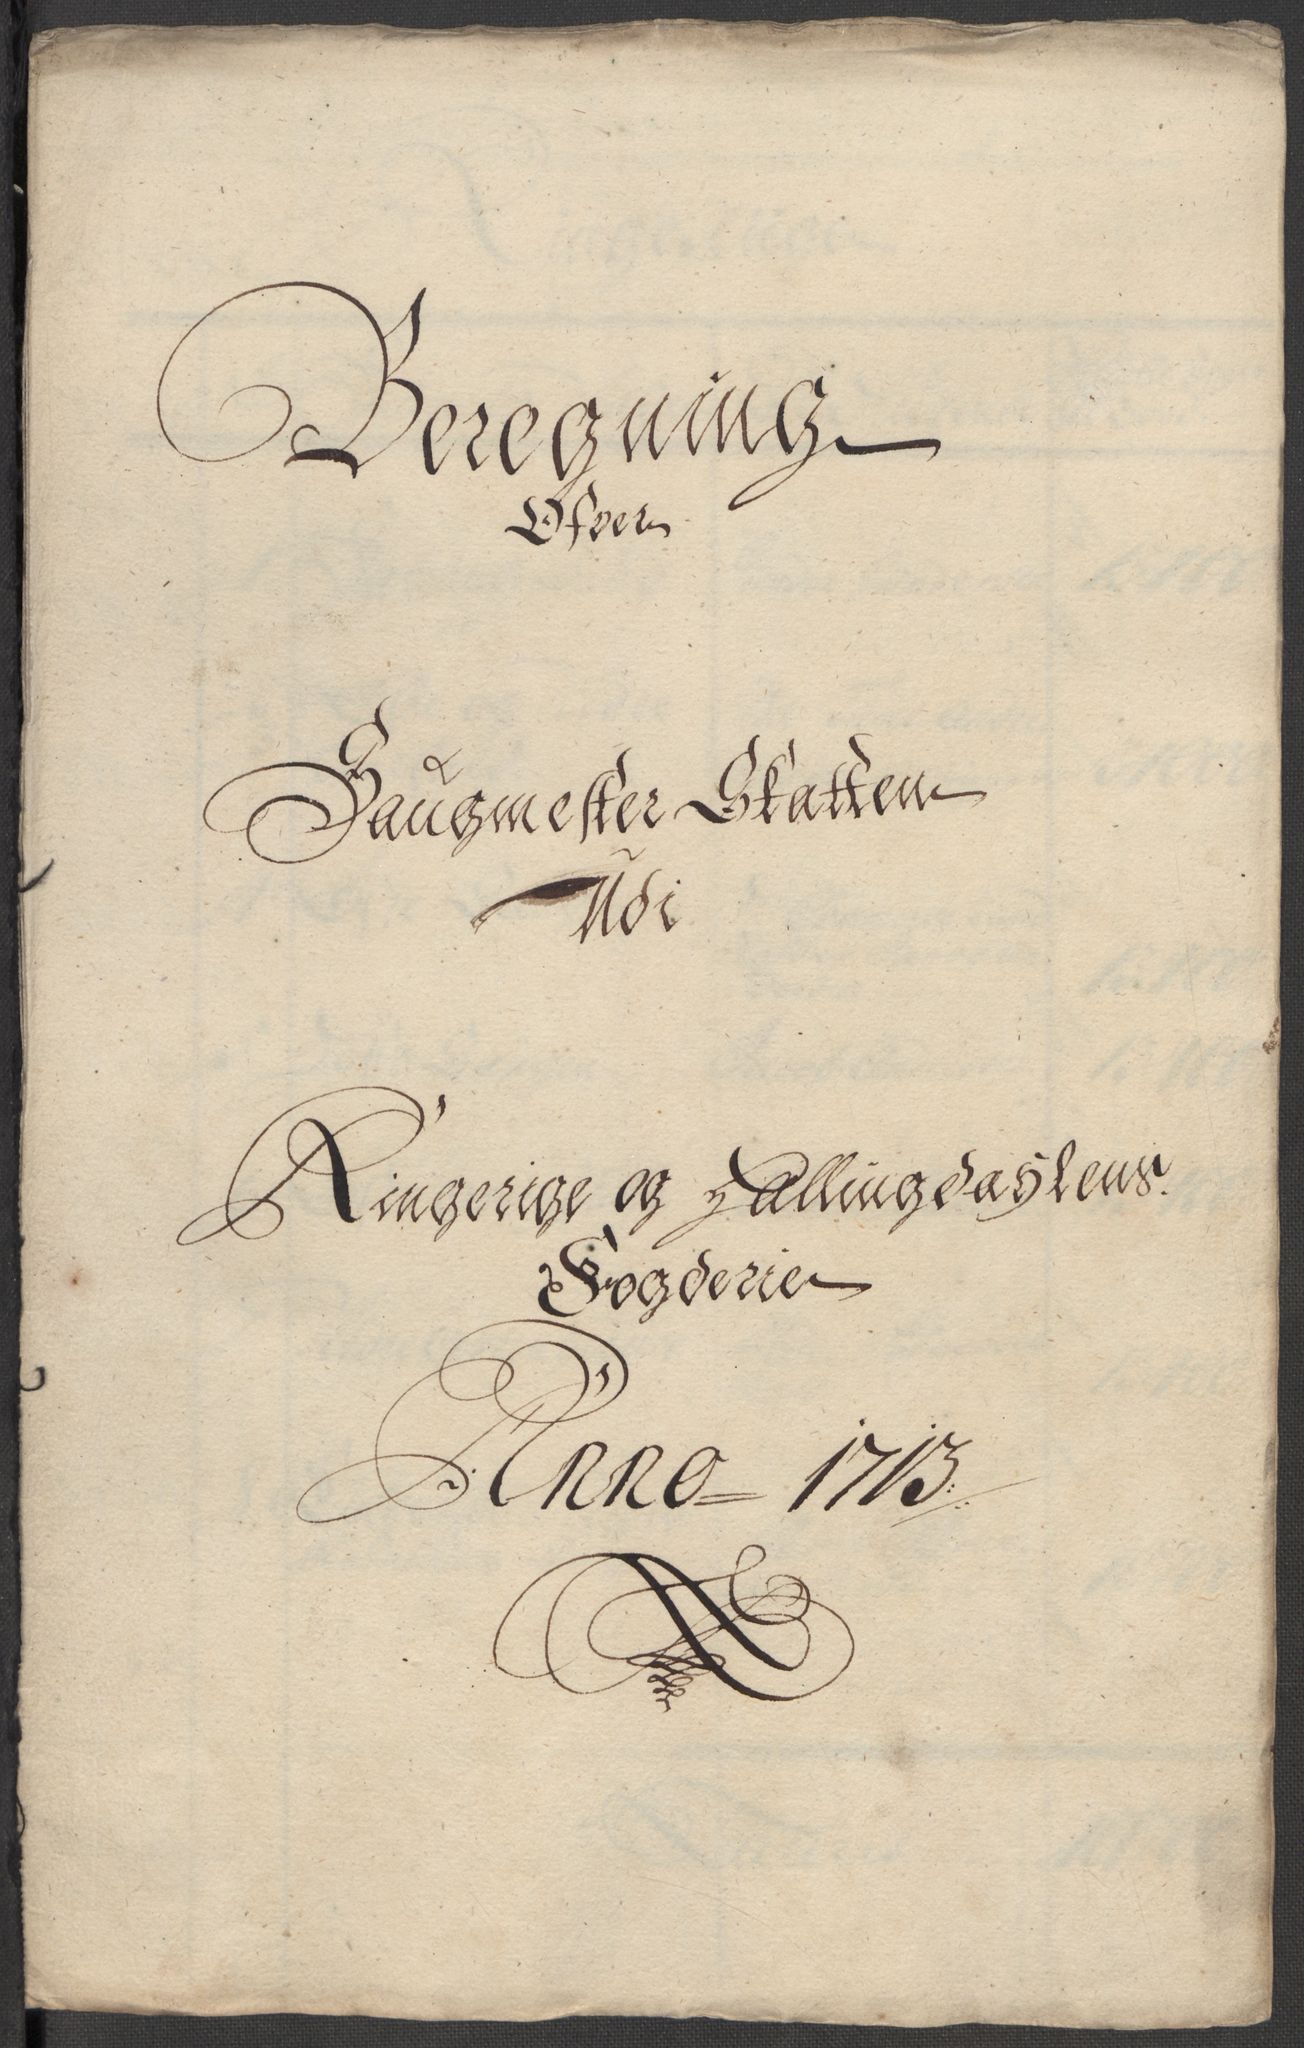 Beregning
Ofver
Saugmester Skatten
Udi
Ringerige og Hallingdahlens
Fogderie
Anno 1713